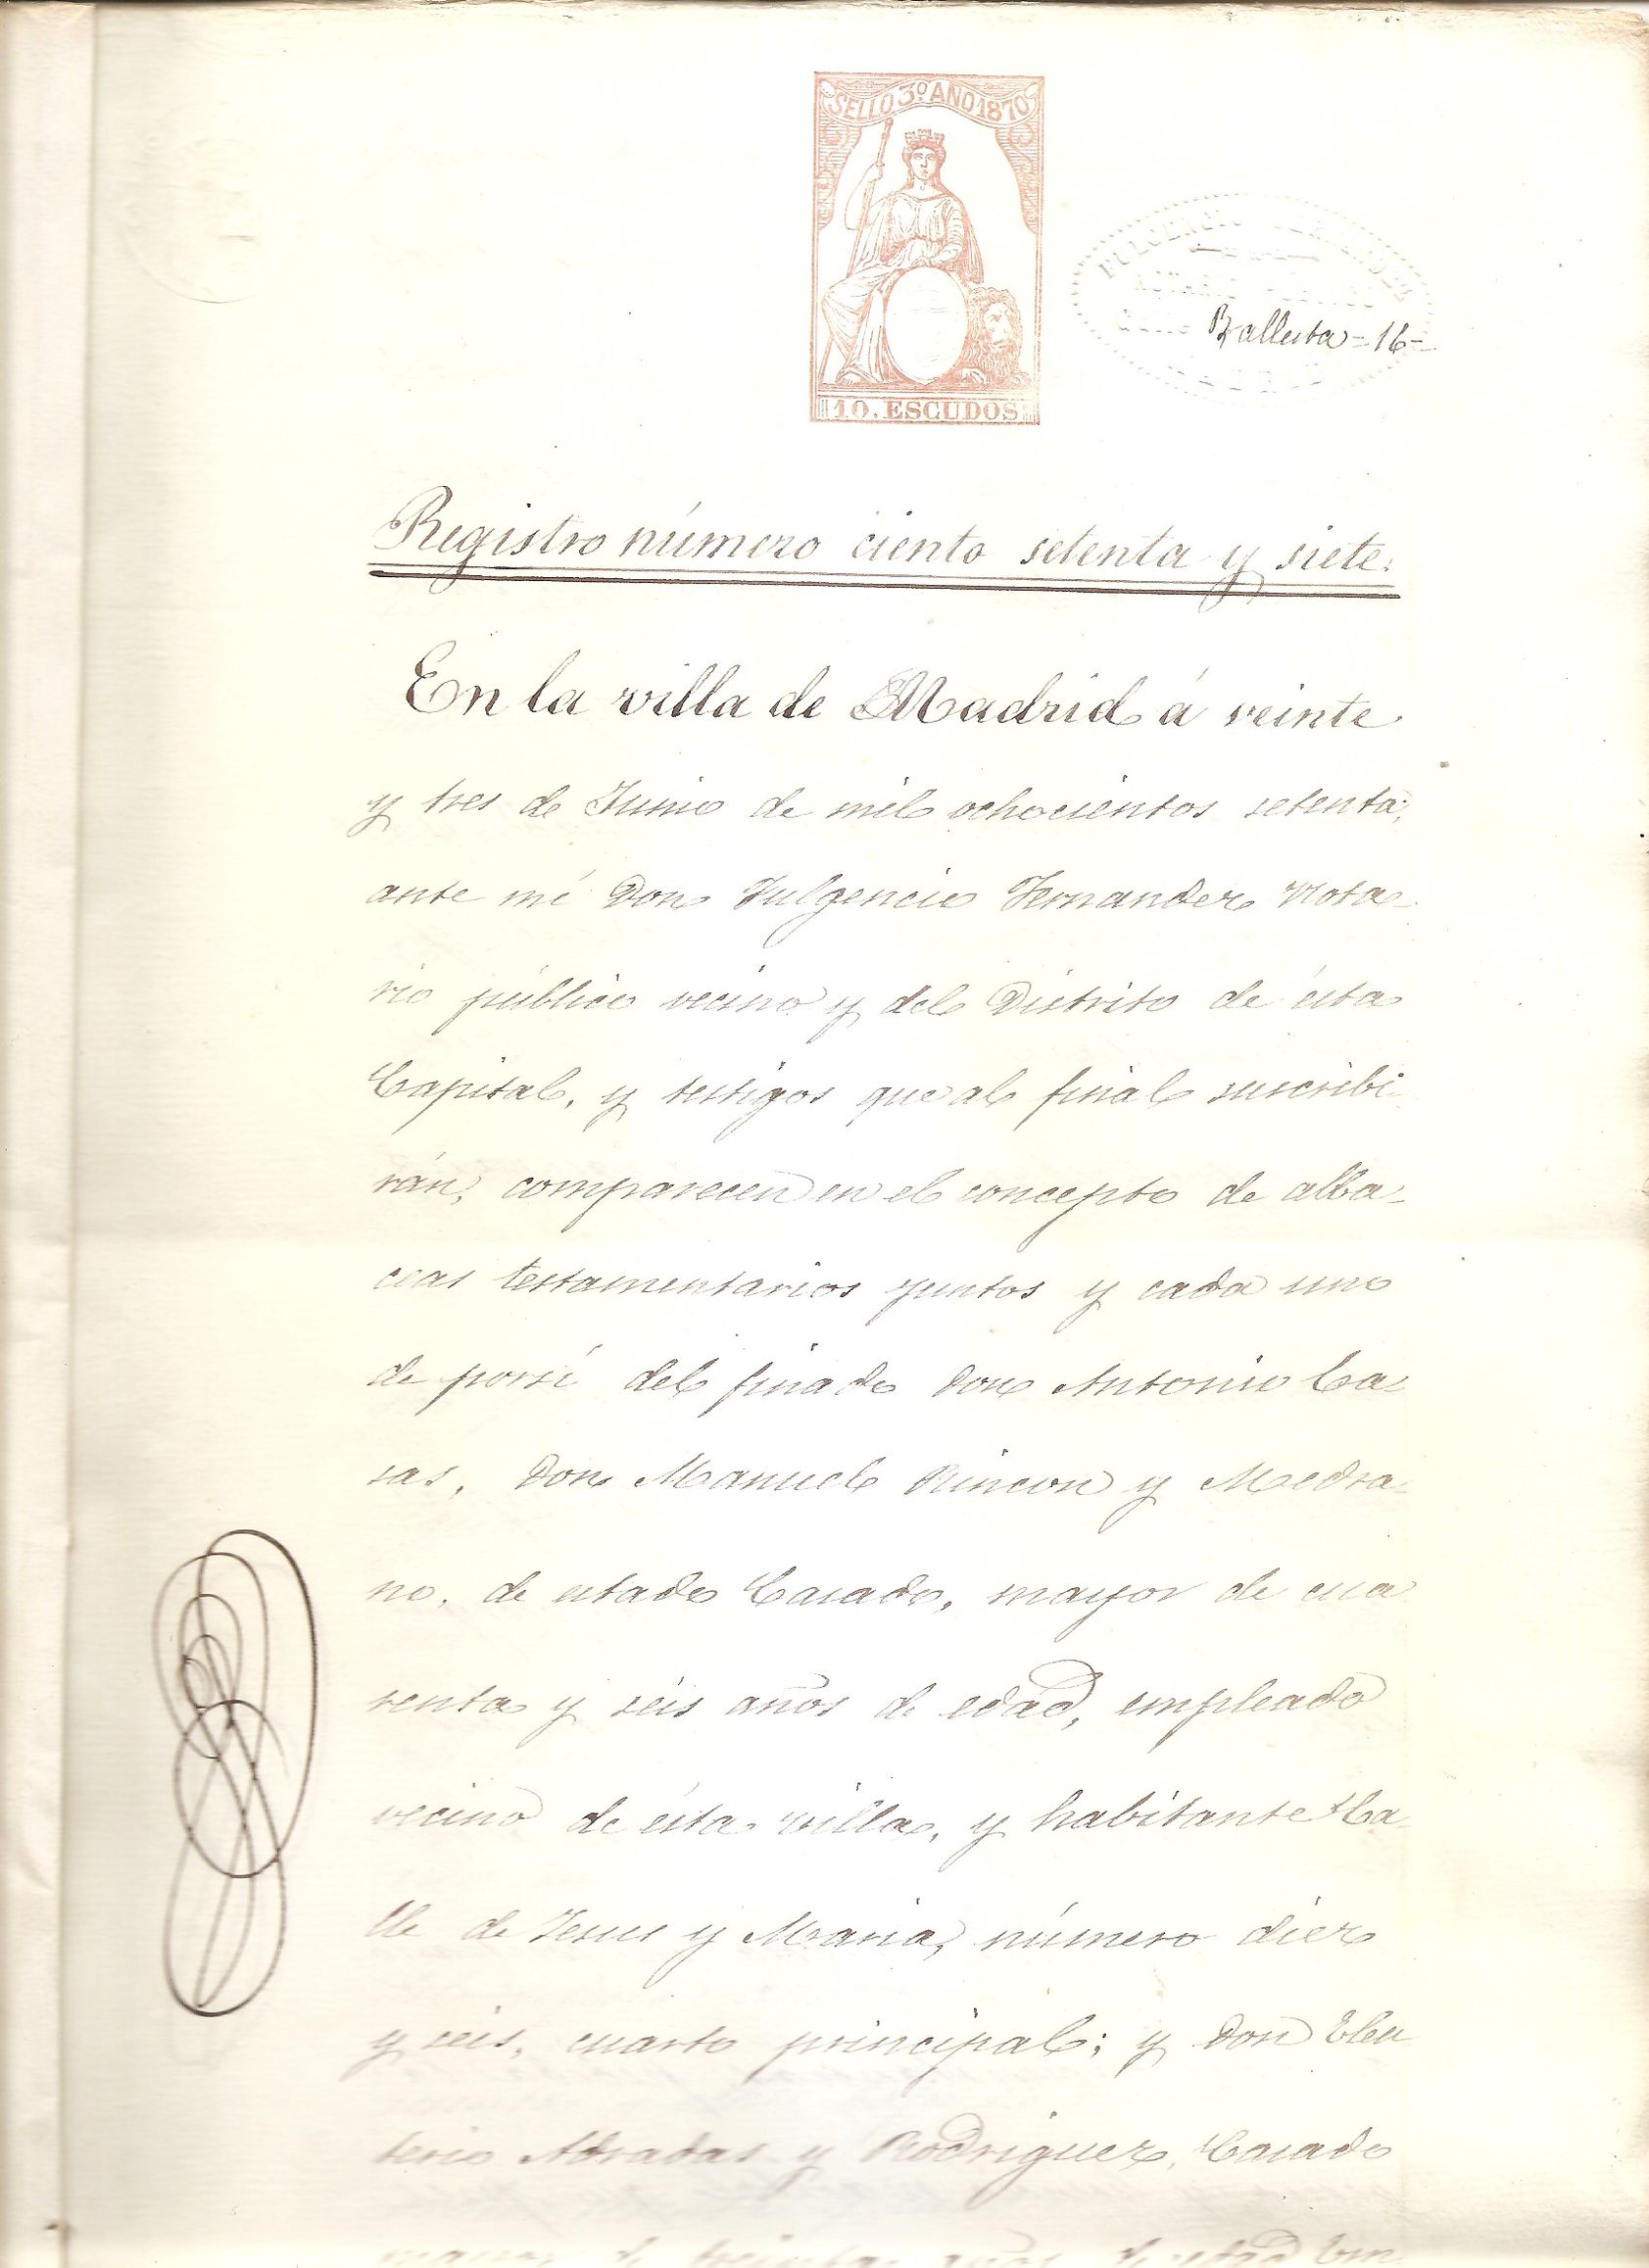 SELLO 3º AÑO 1870
10. ESCUDOS
FULGENCIO FERNANDEZ
NOTARIO PUBLICO
Ballesta = 16 =
MADRID
Registro número ciento setenta y siete.
En la villa de Madrid á veinte
y tres de Junio de mil ochocientos setenta;
ante mi Don Fulgencio Fernandez Nota-
rio público vecino y del Distrito de ésta
Capital, y testigos que al final suscribi-
rán, comparecen en el concepto de alba-
ceas testamentarios juntos y cada uno
de porsí del finado Don Antonio Ca-
sas, Don Manuel Rincon y Medra-
no, de estado Casado, mayor de cua
renta y seis años de edad, empleado
vecino de ésta villa, y habitante Ca
lle de Jesus y Maria, número diez
y seis, cuarto principal; y Don Eleu
terio Adradas y Rodriguez, Casado
mayor de treinta años de edad Em